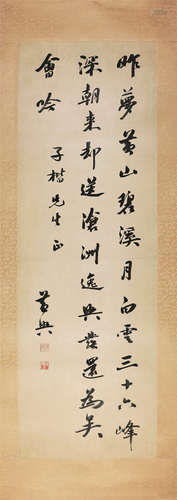 昨夢黃山碧溪月白雲三十六峰
深朝来却送滄洲逸興發還為吳
會吟
子楷先生正
黃興